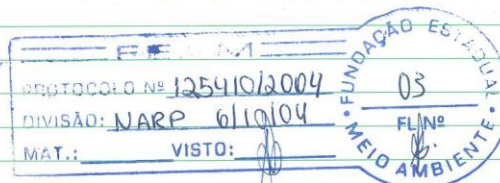 FEAM
PROTOCOLO Nº 125410/2004
DIVISÃO: NARP 6/10/04
MAT.: VISTO:
FUNDAÇÃO ESTADUAL
MEIO AMBIENTE
03
FL Nº